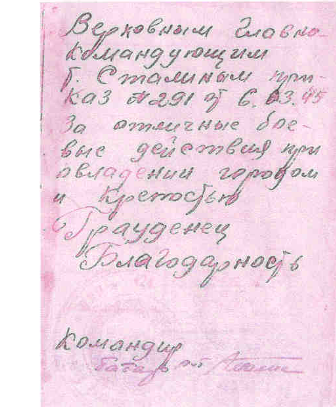 Верховным Главно-
командующим
Г. Сталиным при-
каз №291 от 6.03.45
За отличные бое-
вые действия при
овладении городом
и Крепостью
Грауденец
Благодарность
Командир